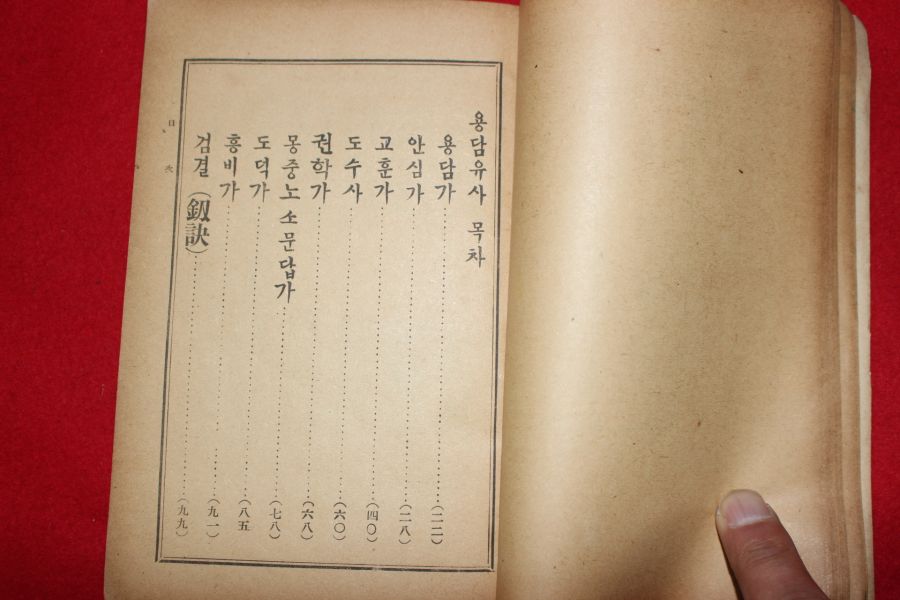 용담유사 목차
용담가……(二二)
안심가……(二八)
교훈가……(四〇)
도수사……(六〇)
권학가……(六八)
몽중노소문답가……(七八)
도덕가……(八五
흥비가……(九一)
검결(釼訣)……(九九)
目次